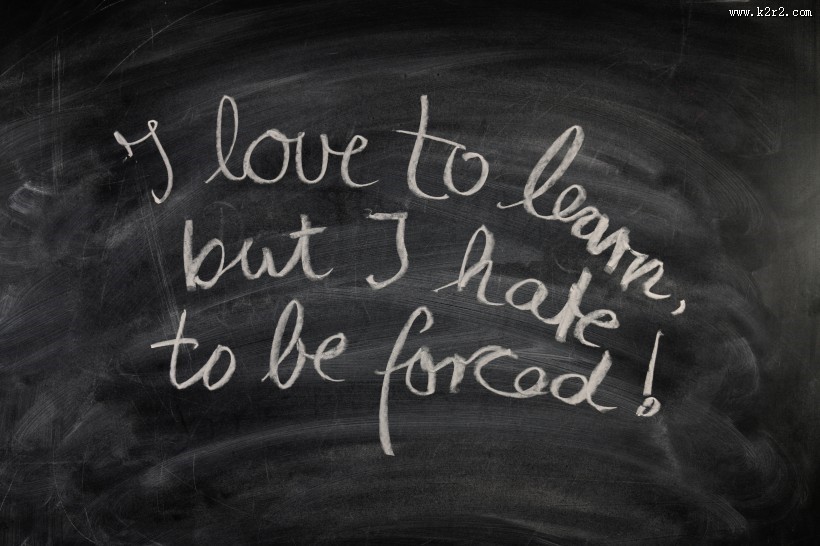 www.k2r2.com
I love to learn,
but I hate
to be forced!